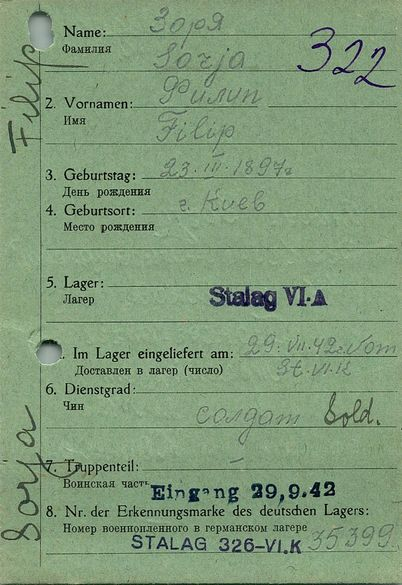 Name: Зоря
Фамилия
Sorja
322
2. Vornamen: Филип
Имя
Filip
3. Geburtstag: 23. III. 1897г
День рождения
4. Geburtsort: г. Киев
Место рождения
5. Lager:
Лагер
Stalag VI-A
. Im Lager eingeliefert am: 29. VII. 42. Vom
Доставлен в лагер (число) St. VI. K
6. Dienstgrad:
Чин
солдат Sold.
7. Truppenteil: –
Воинская часть
Eingang 29.9.42
8. Nr. der Erkennungsmarke des deutschen Lagers:
Номер военнопленного в германском лагере
STALAG 326-VI.K 35399
Sorja Filip